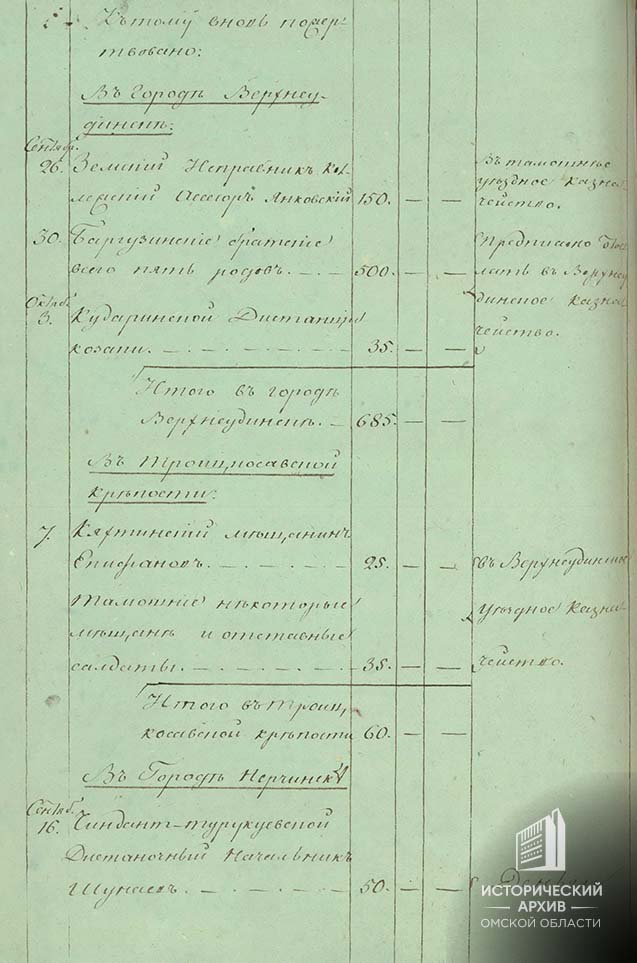 Къ тому вновь пожер-
твовано:
Въ Городѣ Верхнеу-
динскѣ:
Сентябр.
26. Земский Исправникъ кол-
лежский Асесоръ Янковский 150. — — Въ тамошнее
уѣздное казна
чейство.
30. Баргузинские братские
всего пять родовъ. — . — 500. — — Предписано
въ Верхнеу
Октяб.
динское казна
3. Кударинской Дистанции
чейство.
козаки. — . — . — . — 35. — —
Итого въ городѣ
Верхнеудинскѣ. — 685. — —
Въ Троицкосавской
крѣпости:
7. Кяхтинский мѣщанинъ
Епифановъ. — . — . — 25. — — въ Верхнеудинское
Тамошние нѣкоторые
уѣздное казна
мѣщане и отставные
салдаты. — . — . — . — 35. — — чейство.
Итого въ Троиц
косавской крѣпости 60. — —
Въ Городѣ Нерчинскѣ
Сентяб.
16. Чиндант-турукуевской
Дистаночный Начальникъ
Шунаевъ. — . — . — . — 50. — —
ИСТОРИЧЕСКИЙ
АРХИВ
ОМСКОЙ ОБЛАСТИ